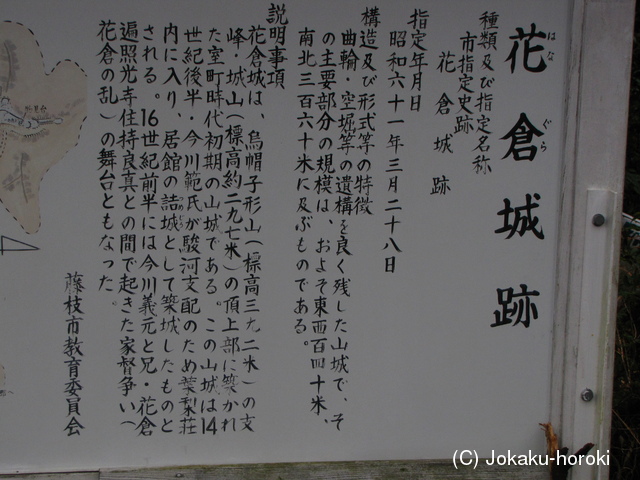 花倉城跡
はな ぐら
種類及び指定名称
市指定史跡
花倉城跡
指定年月日
昭和六十一年三月二十八日
構造及び形式等の特徴
曲輪・空堀等の遺構を良く残した山城で、そ
の主要部分の規模は、およそ東西百四十米、
南北三百六十米に及ぶものである。
説明事項
花倉城は、烏帽子形山(標高三九二米)の支
峰・城山(標高約二九七米)の頂上部に築かれ
た室町時代初期の山城である。この山城は14
世紀後半・今川範氏が駿河支配のため葉梨荘
内に入り、居館の詰城として築城したものと
される。16世紀前半には今川義元と兄・花倉
遍照光寺住持良真との間で起きた家督争い(
花倉の乱)の舞台ともなった。
藤枝市教育委員会
(C) Jokaku-horoki